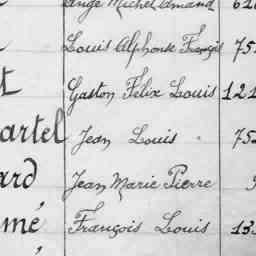 Ange Michel Amand 62
Louis Alphonse François 75
t Gaston Félix Louis 121
artel Jean Louis 752
ard Jean Marie Pierre
mé François Louis 13